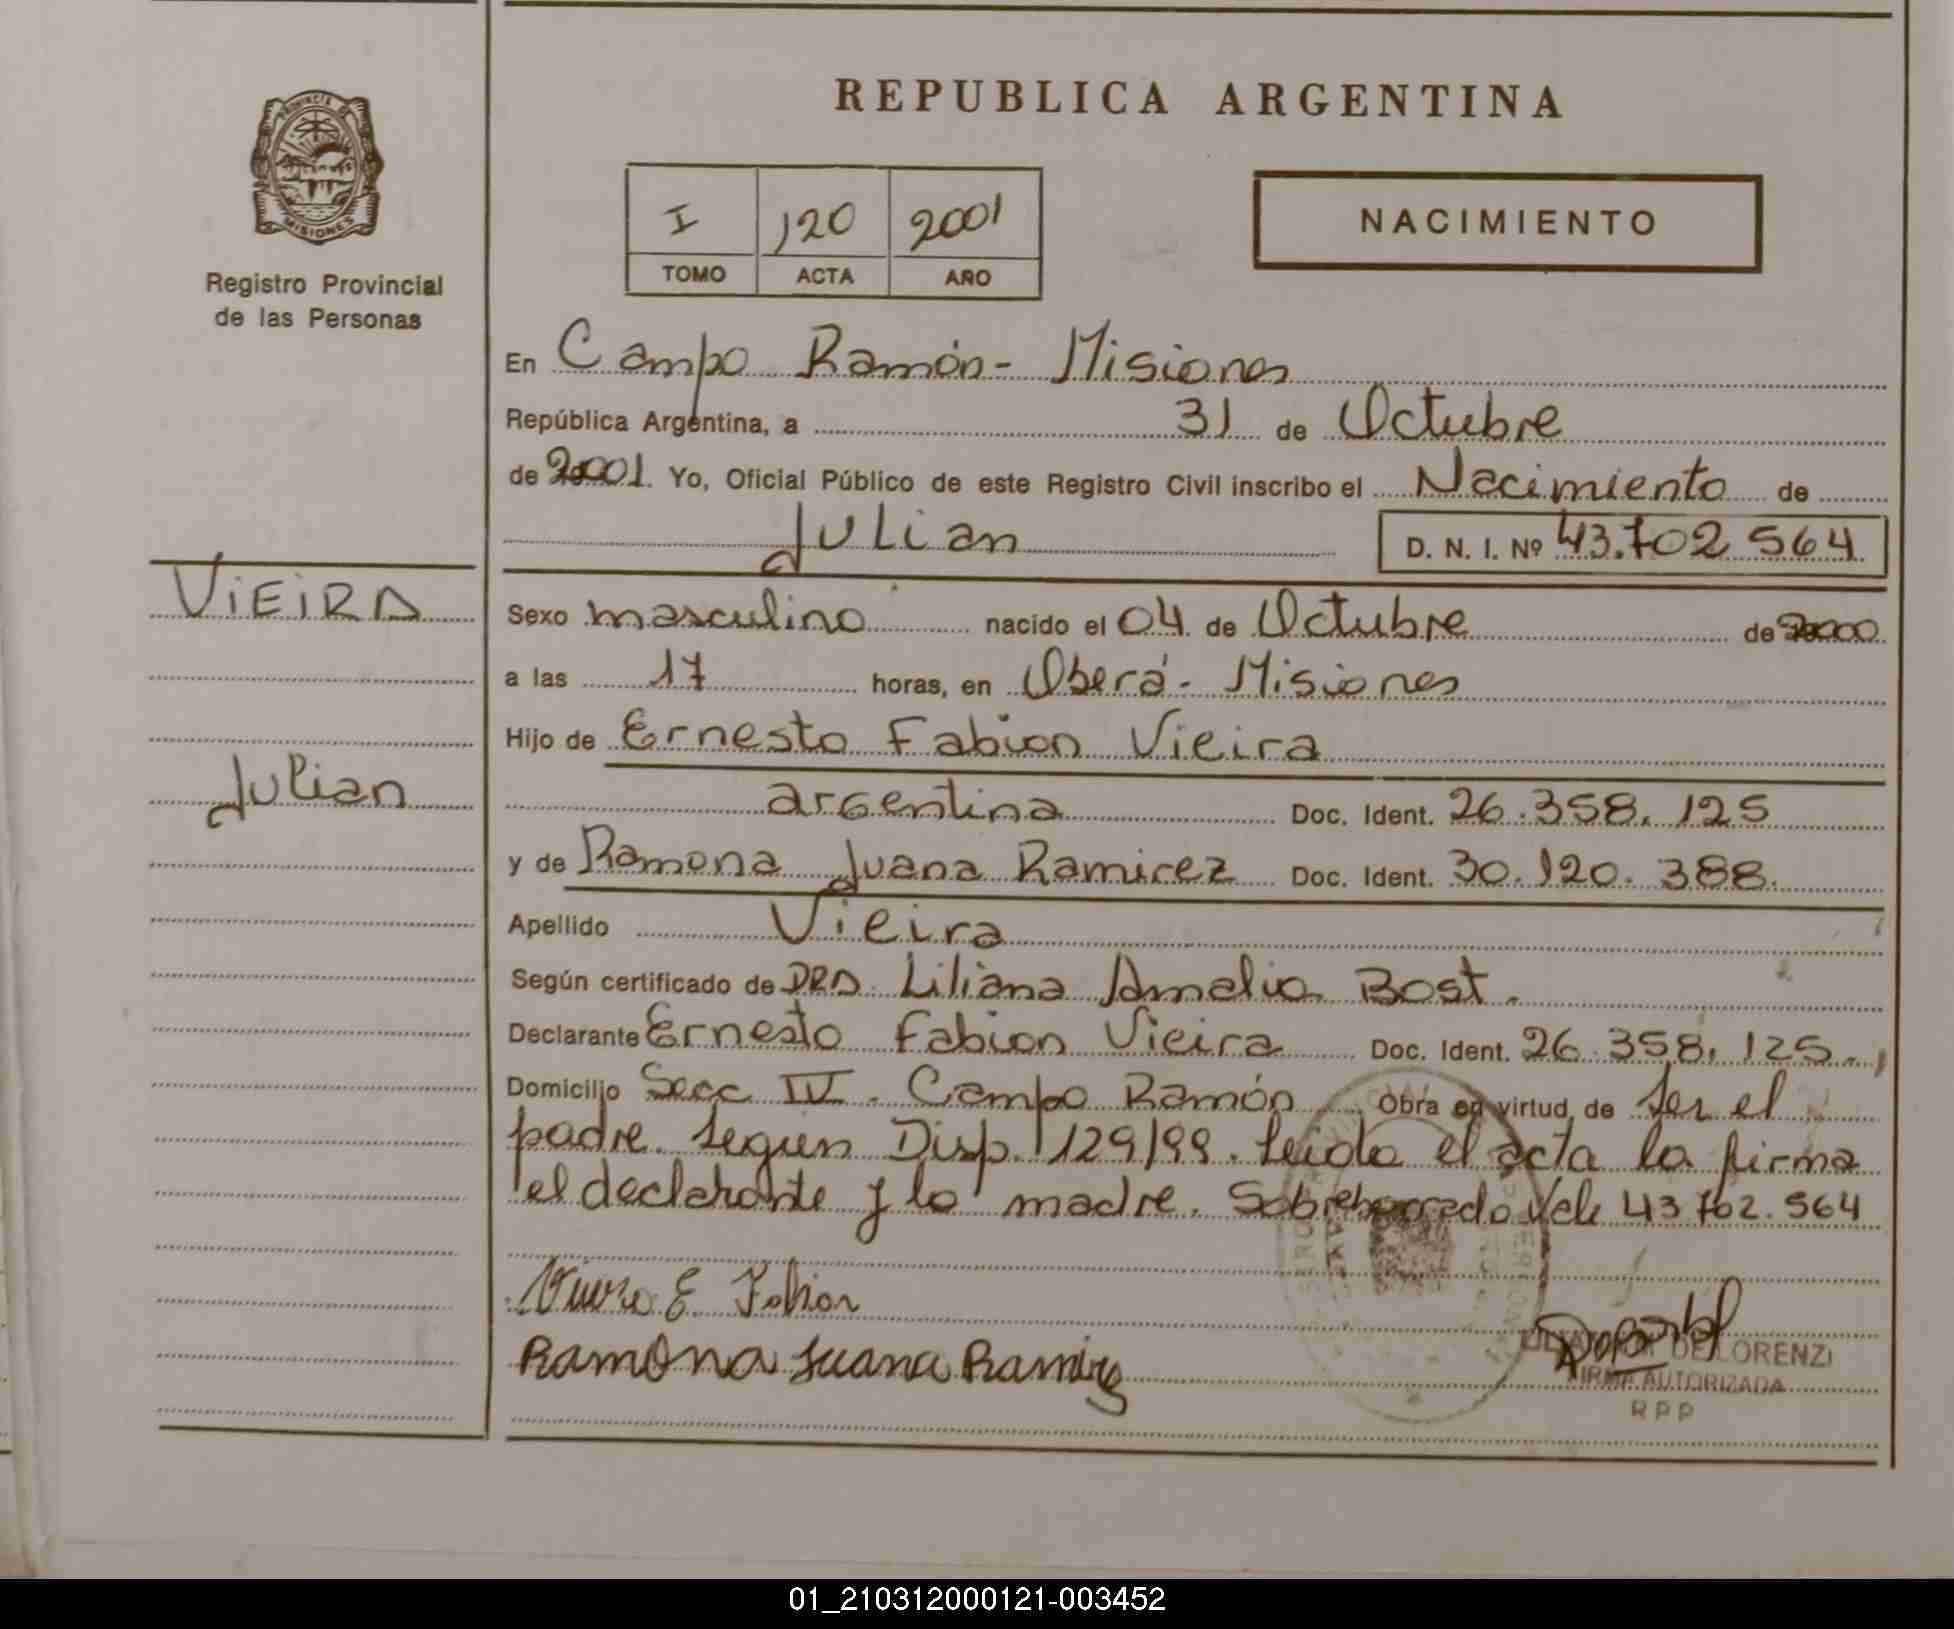 REPUBLICA ARGENTINA
PROVINCIA DE
MISIONES
Registro Provincial
de las Personas
I 120 2001
TOMO ACTA AÑO
NACIMIENTO
En Campo Ramón - Misiones
República Argentina, a 31 de Octubre
de 2001. Yo, Oficial Público de este Registro Civil inscribo el Nacimiento de
Julian D. N. I. Nº 43.702 564
VIEIRA
Julian
Sexo masculino nacido el 04 de Octubre de 2000
a las 17 horas, en Oberá - Misiones
Hijo de Ernesto Fabion Vieira
argentina Doc. Ident. 26.358.125
y de Ramona Juana Ramirez Doc. Ident. 30.120.388.
Apellido Vieira
Según certificado de DRA. Liliana Amalia Bost.
Declarante Ernesto Fabion Vieira Doc. Ident. 26.358.125.
Domicilio Secc IV. Campo Ramón Obra en virtud de ser el
padre. Segun Disp. 129/99. Leida el acta la firma
el declarante y la madre. Sobreborrado Vale 43 702.564
E. Fabion
Ramona Juana Ramirez
DE LORENZI
FIRMA AUTORIZADA
R P P
01_210312000121-003452